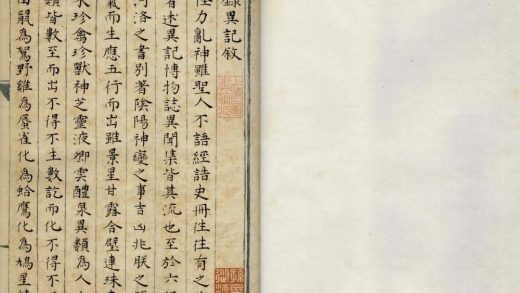 錄異記敘
怪力亂神雖聖人不語經誥史冊往往有之
者述異記博物誌異聞集皆其流也至於六
河洛之書別著陰陽神變之事吉凶兆朕之
氣而生應五行而出雖景星甘露合璧連珠
水珍禽珍獸神芝靈液卿雲醴泉異類為人
類皆數至而出不得不生數訖而化不得不
鼠為鴽野雞為蜃雀化為蛤鷹化為鳩星